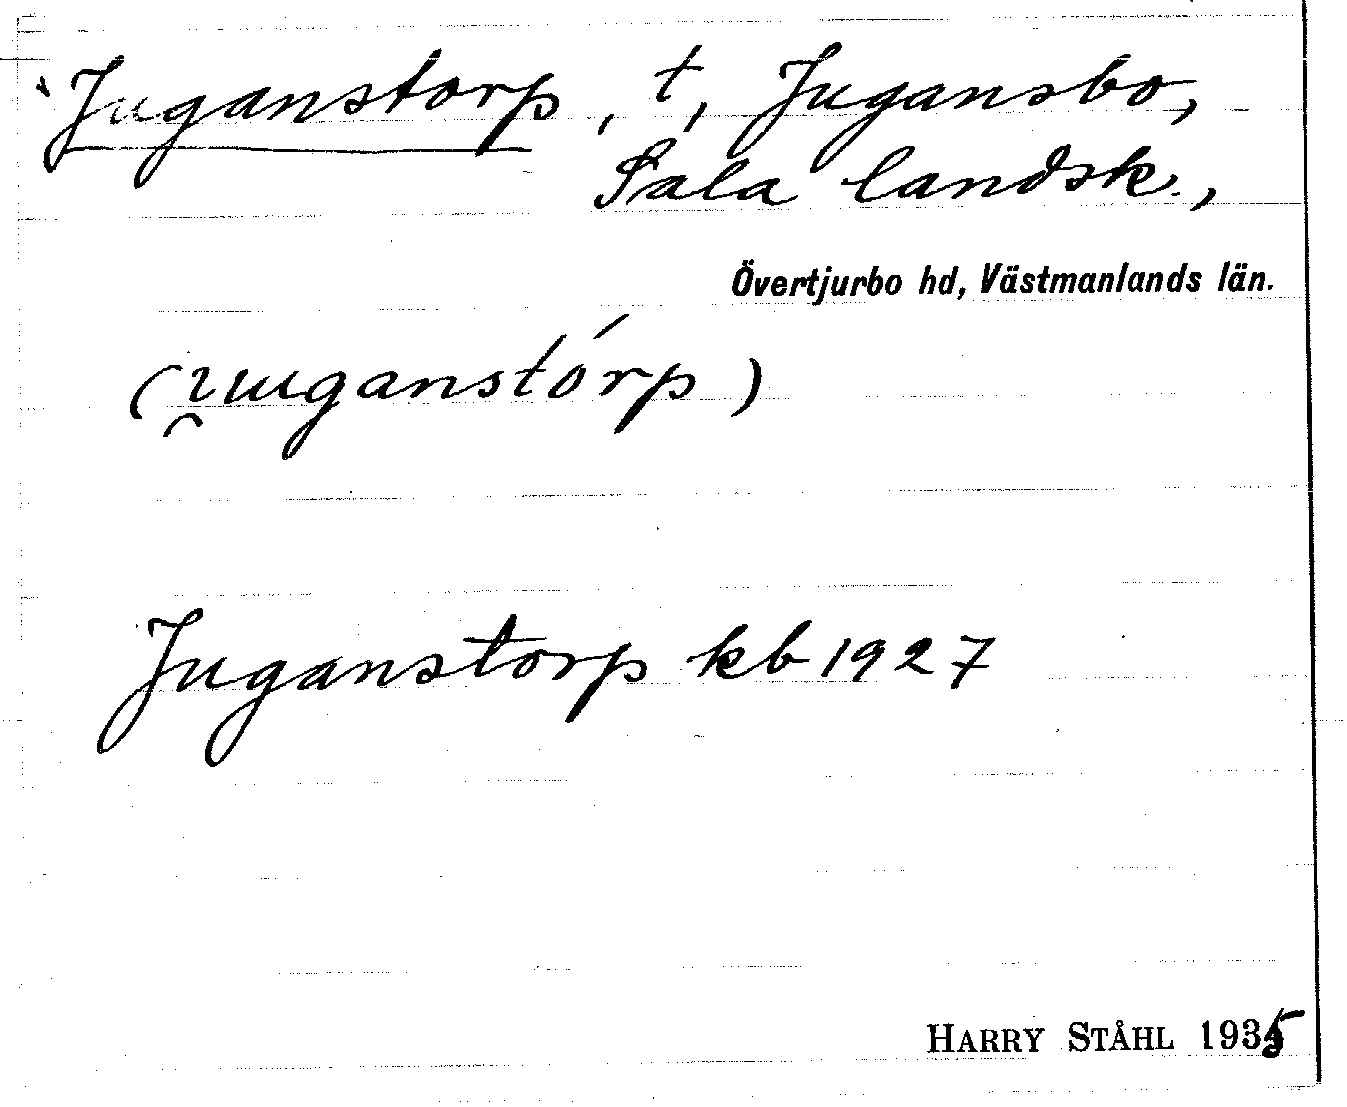 Juganstorp, t, Jugansbo,
Sala landsk.,
Övertjurbo hd, Västmanlands län.
(i̯uganstórp)
Juganstorp kb 1927
HARRY STÅHL 1935